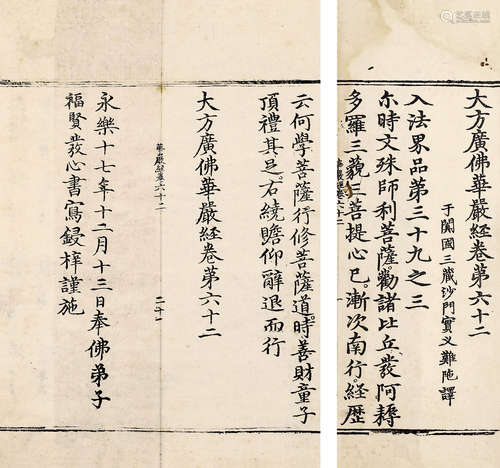 大方廣佛華嚴經卷第六十二
于闐國三藏沙門實叉難陁譯
入法界品第三十九之三
尒時文殊師利菩薩勸諸比丘發阿耨
多羅三藐三菩提心已漸次南行經歷
云何學菩薩行修菩薩道時善財童子
頂禮其足右繞瞻仰辭退而行
大方廣佛華嚴經卷第六十二
華嚴經卷六十二
二十一
永樂十七年十二月十三日奉佛弟子
福賢發心書寫鋟梓謹施